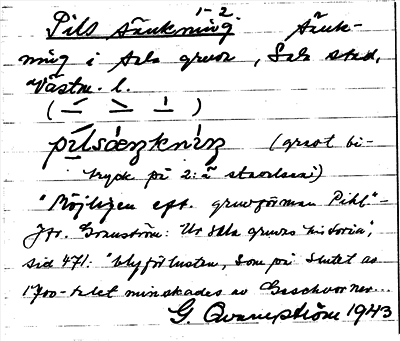 1-2.
Pils sänkning. Sänk-
ning i Sala gruva, Sala stad,
Västm. l.
pílsæŋknìŋ (gravt bi-
tryck på 2:a stavelsen)
"Möjligen eft. gruvförman Pihl" -
Jfr. Granström: Ur Sala gruvas historia,
sid 471: "blyförlusten, som på slutet av
1700-talet minskades av Geschworner...
G. Qvarnström 1943